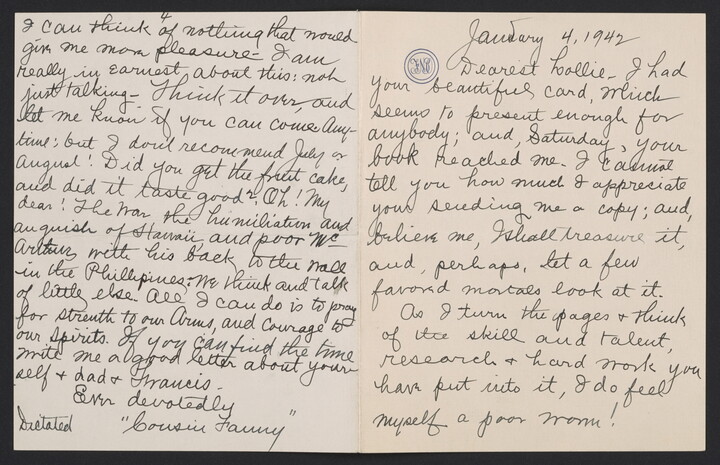 January 4, 1942
Dearest Lollie_ I had
your beautiful card, which
seems to present enough for
anybody; and, Saturday, your
book reached me. I cannot
tell you how much I appreciate
your sending me a copy; and,
believe me, I shall treasure it,
and, perhaps, let a few
favored mortals look at it.
As I turn the pages & think
of the skill and talent,
research & hard work you
have put into it, I do feel
myself a poor worm!
4
I can think of nothing that would
give me more pleasure_ I am
really in earnest about this: not
just talking_ Think it over, and
let me know if you can come Any-
time: but I don't recommend July or
August! Did you get the fruit cake,
and did it taste good? Oh! My
dear! The War, the humiliation and
anguish of Hawaii, and poor Mc
Arthur with his back to the wall
in the Phillipines: We think and talk
of little else. All I can do is to pray
for strenth to our Arms, and Courage to
our Spirits. If you can find the time
write me a good letter about your-
self & dad & Francis_
Ever devotedly
Dictated "Cousin Fanny"